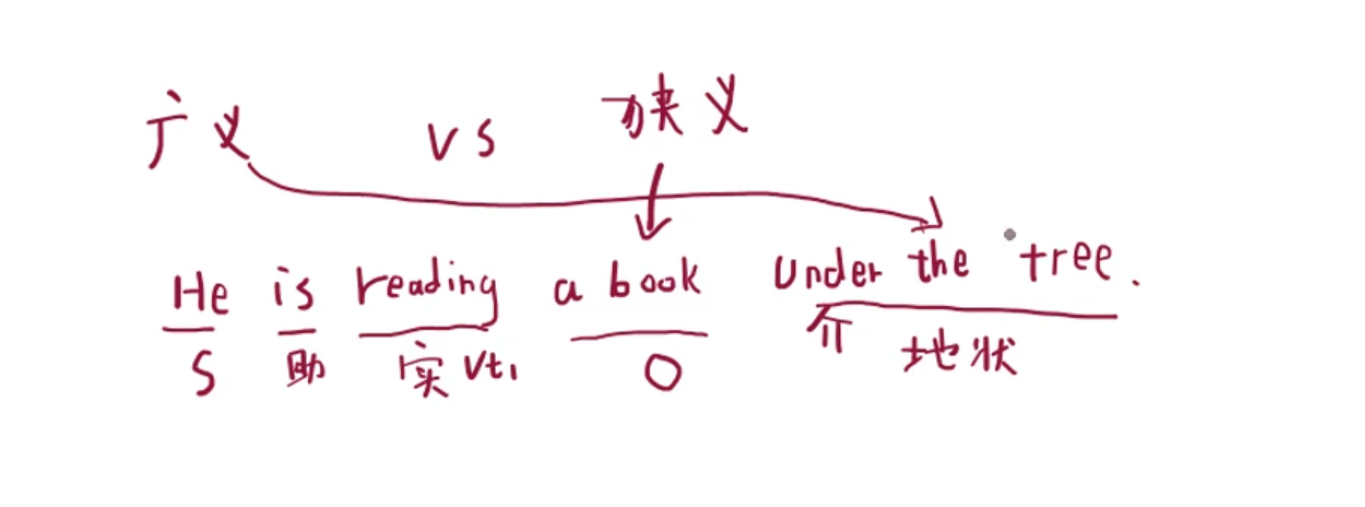 广义 vs 狭义
He is reading a book under the tree.
S 助 实 vt. O 介 地状